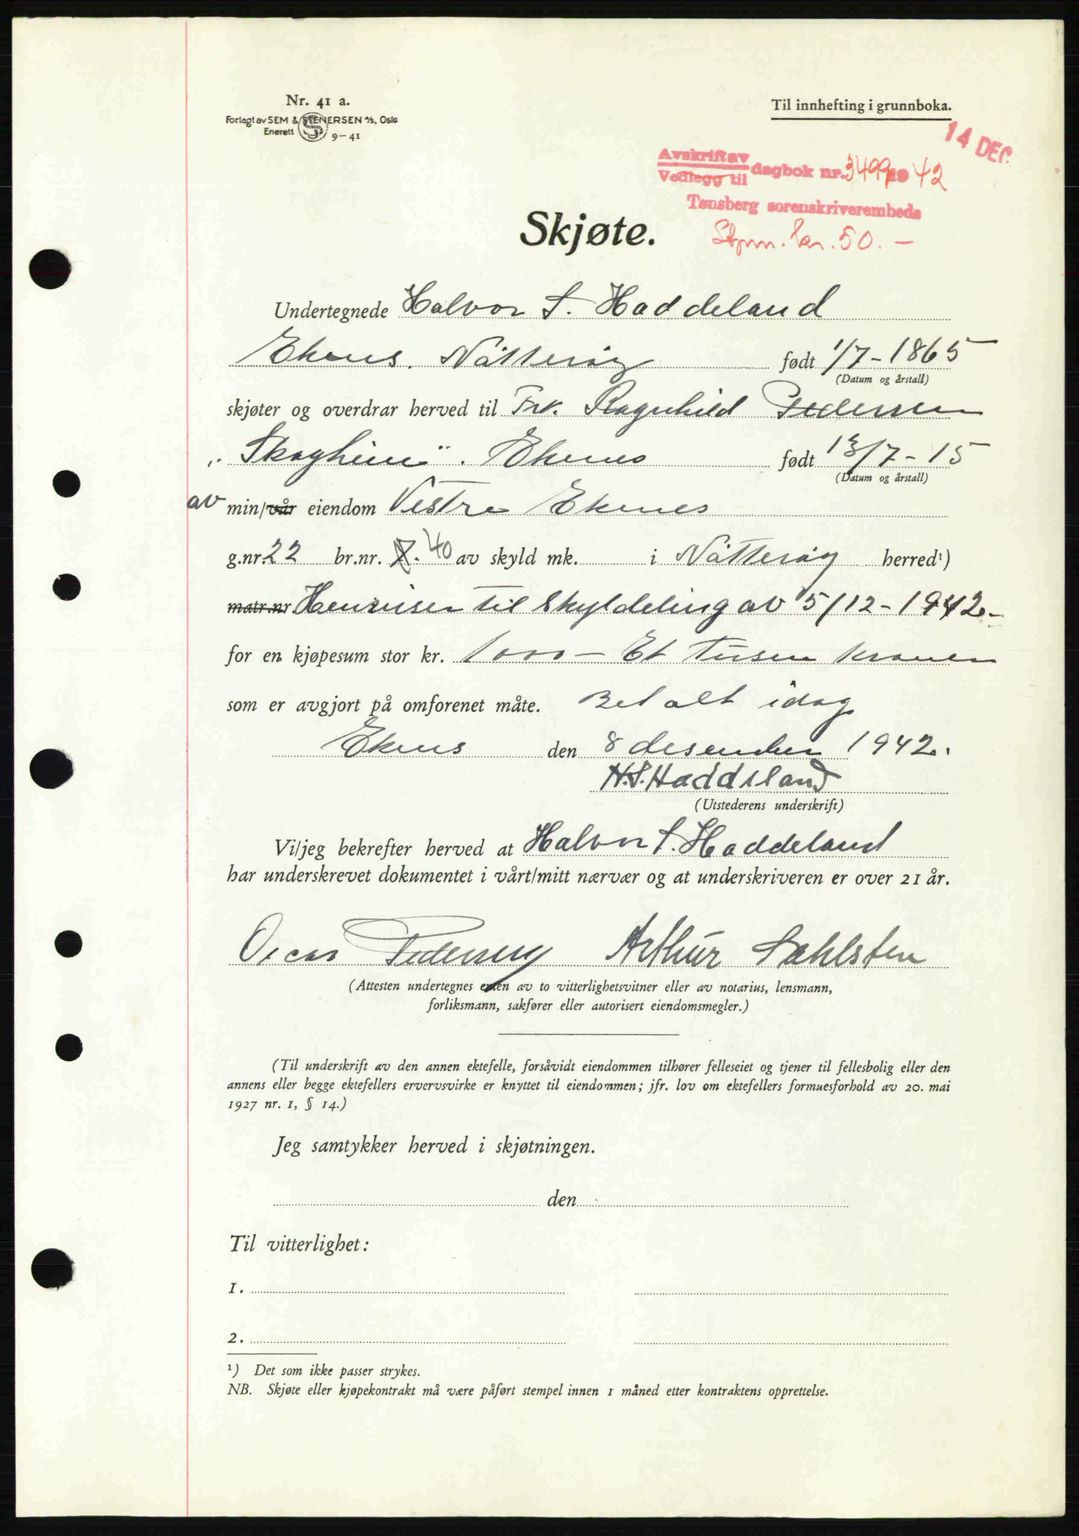 Nr. 41 a.
Forlagt av SEM & STENERSEN A/S, Oslo
Enerett 9-41
Til innhefting i grunnboka.
14 DEC
Avskrift av
Vedlegg til dagbok nr. 3499 19 42
Tønsberg sorenskriverembede
Stpm. kr. 50.-
Skjøte.
Undertegnede Halvor S. Haddeland
Ekenes. Nøtterøy født 1/7-1865
(Datum og årstall)
skjøter og overdrar herved til Frk. Ragnhild Pedersen
"Skogheim". Ekenes født 13/7-15
(Datum og årstall)
av min/vår eiendom Vestre Ekenes
g.nr. 22 br.nr. 7. 40 av skyld mk. i Nøtterøy herred¹)
matr.nr Henviser til Skyldeling av 5/12-1942.-
for en kjøpesum stor kr. 1000 - Et tusen kroner
som er avgjort på omforenet måte. Betalt idag
Ekenes den 8 desember 1942.
H.S. Haddeland
(Utstederens underskrift)
Vi/jeg bekrefter herved at Halvor S. Haddeland
har underskrevet dokumentet i vårt/mitt nærvær og at underskriveren er over 21 år.
Oscar Pedersen Arthur Dahlsten
(Attesten undertegnes enten av to vitterlighetsvitner eller av notarius, lensmann,
forliksmann, sakfører eller autorisert eiendomsmegler.)
(Til underskrift av den annen ektefelle, forsåvidt eiendommen tilhører felleseiet og tjener til fellesbolig eller den
annens eller begge ektefellers ervervsvirke er knyttet til eiendommen; jfr. lov om ektefellers formuesforhold av 20. mai
1927 nr. 1, § 14.)
Jeg samtykker herved i skjøtningen.
den
Til vitterlighet:
1.
2.
¹) Det som ikke passer strykes.
NB. Skjøte eller kjøpekontrakt må være påført stempel innen 1 måned etter kontraktens opprettelse.